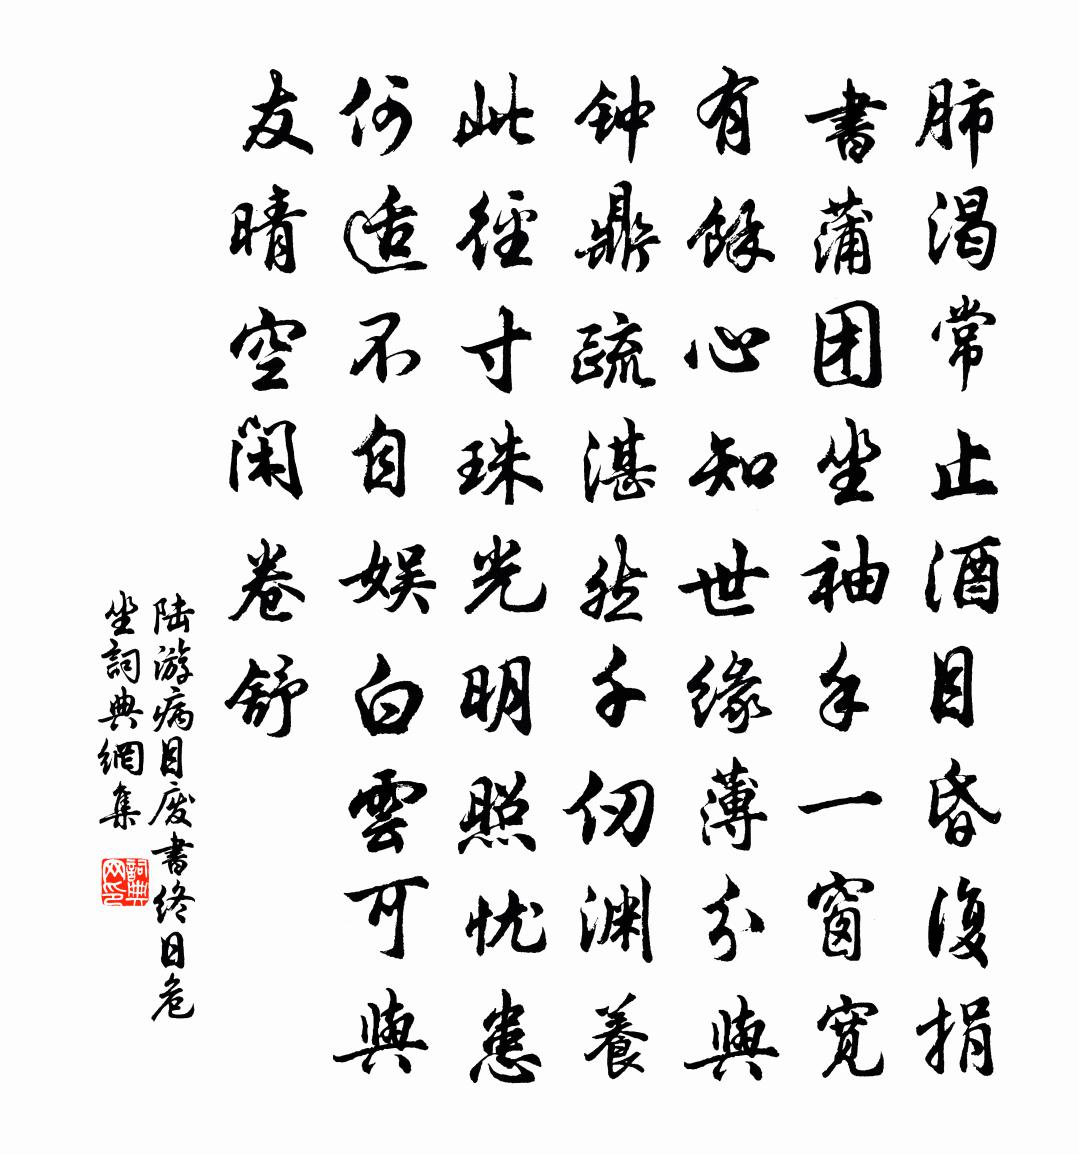 肺渴常止酒目昏復捐
書蒲团坐袖手一窗寬
有餘心知世缘薄分與
钟鼎疏湛然千仞渊養
此徑寸珠光明照忧患
何适不自娱白雲可與
友晴空闲卷舒
陆游病目废書终日危
坐詞典網集
詞典
网印